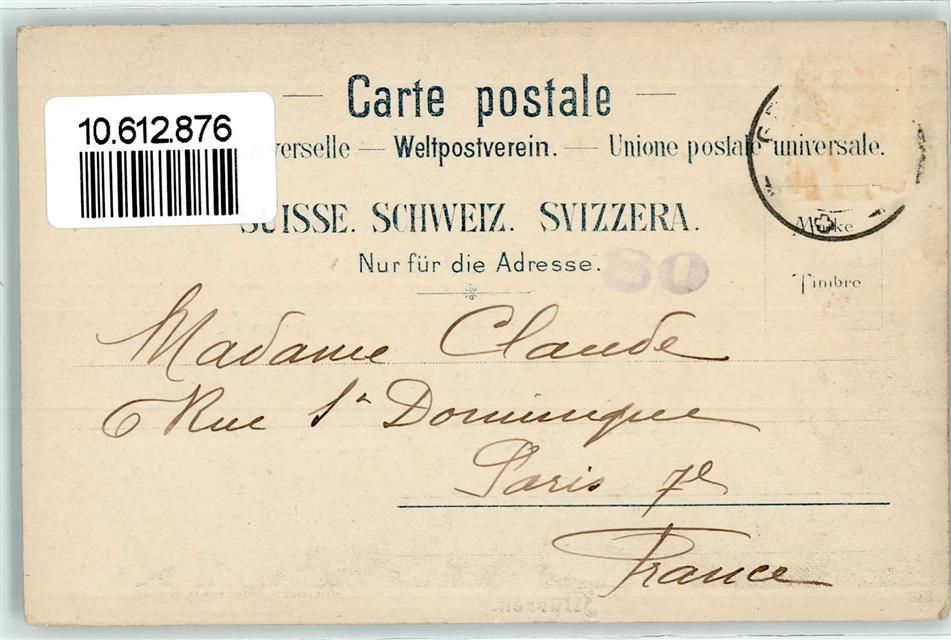 Carte postale
10.612.876
erselle — Weltpostverein. — Unione postale universale.
SUISSE. SCHWEIZ. SVIZZERA.
Marke
Nur für die Adresse.
80
Timbre
Madame Claude
6 Rue St Dominique
Paris 7e
France